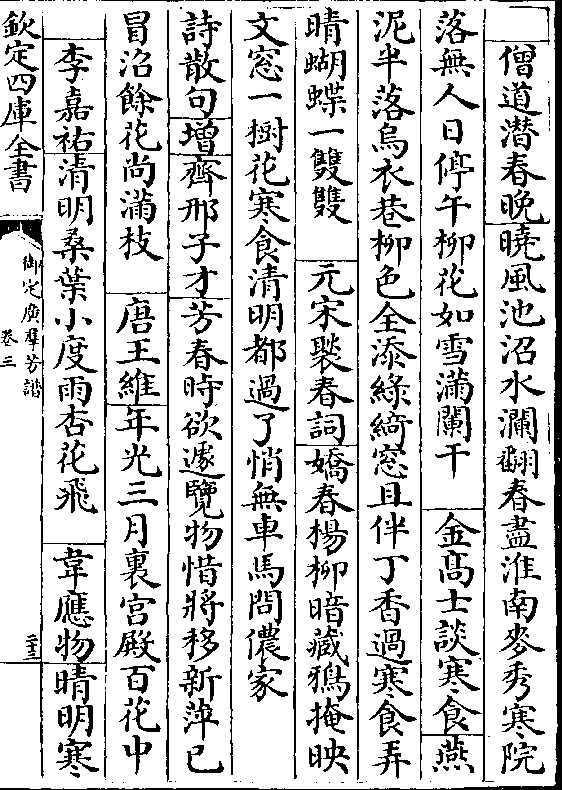 僧道潜春晚曉風池沼水瀾翻春盡淮南麥秀寒院
落無人日停午柳花如雪滿闌干 金髙士談寒食燕
泥半落烏衣巷柳色全添綠綺窓且伴丁香過寒食弄
晴蝴蝶一雙雙 元宋褧春詞嬌春楊柳暗藏鴉掩映
文窓一樹花寒食清明都過了悄無車馬問儂家
詩散句增齊邢子才芳春時欲遽覽物惜將移新萍已
冒沼餘花尚滿枝 唐王維年光三月裏宫殿百花中
李嘉祐清明桑葉小度雨杏花飛 韋應物晴明寒
欽定四庫全書
御定廣羣芳譜
卷三
二十三